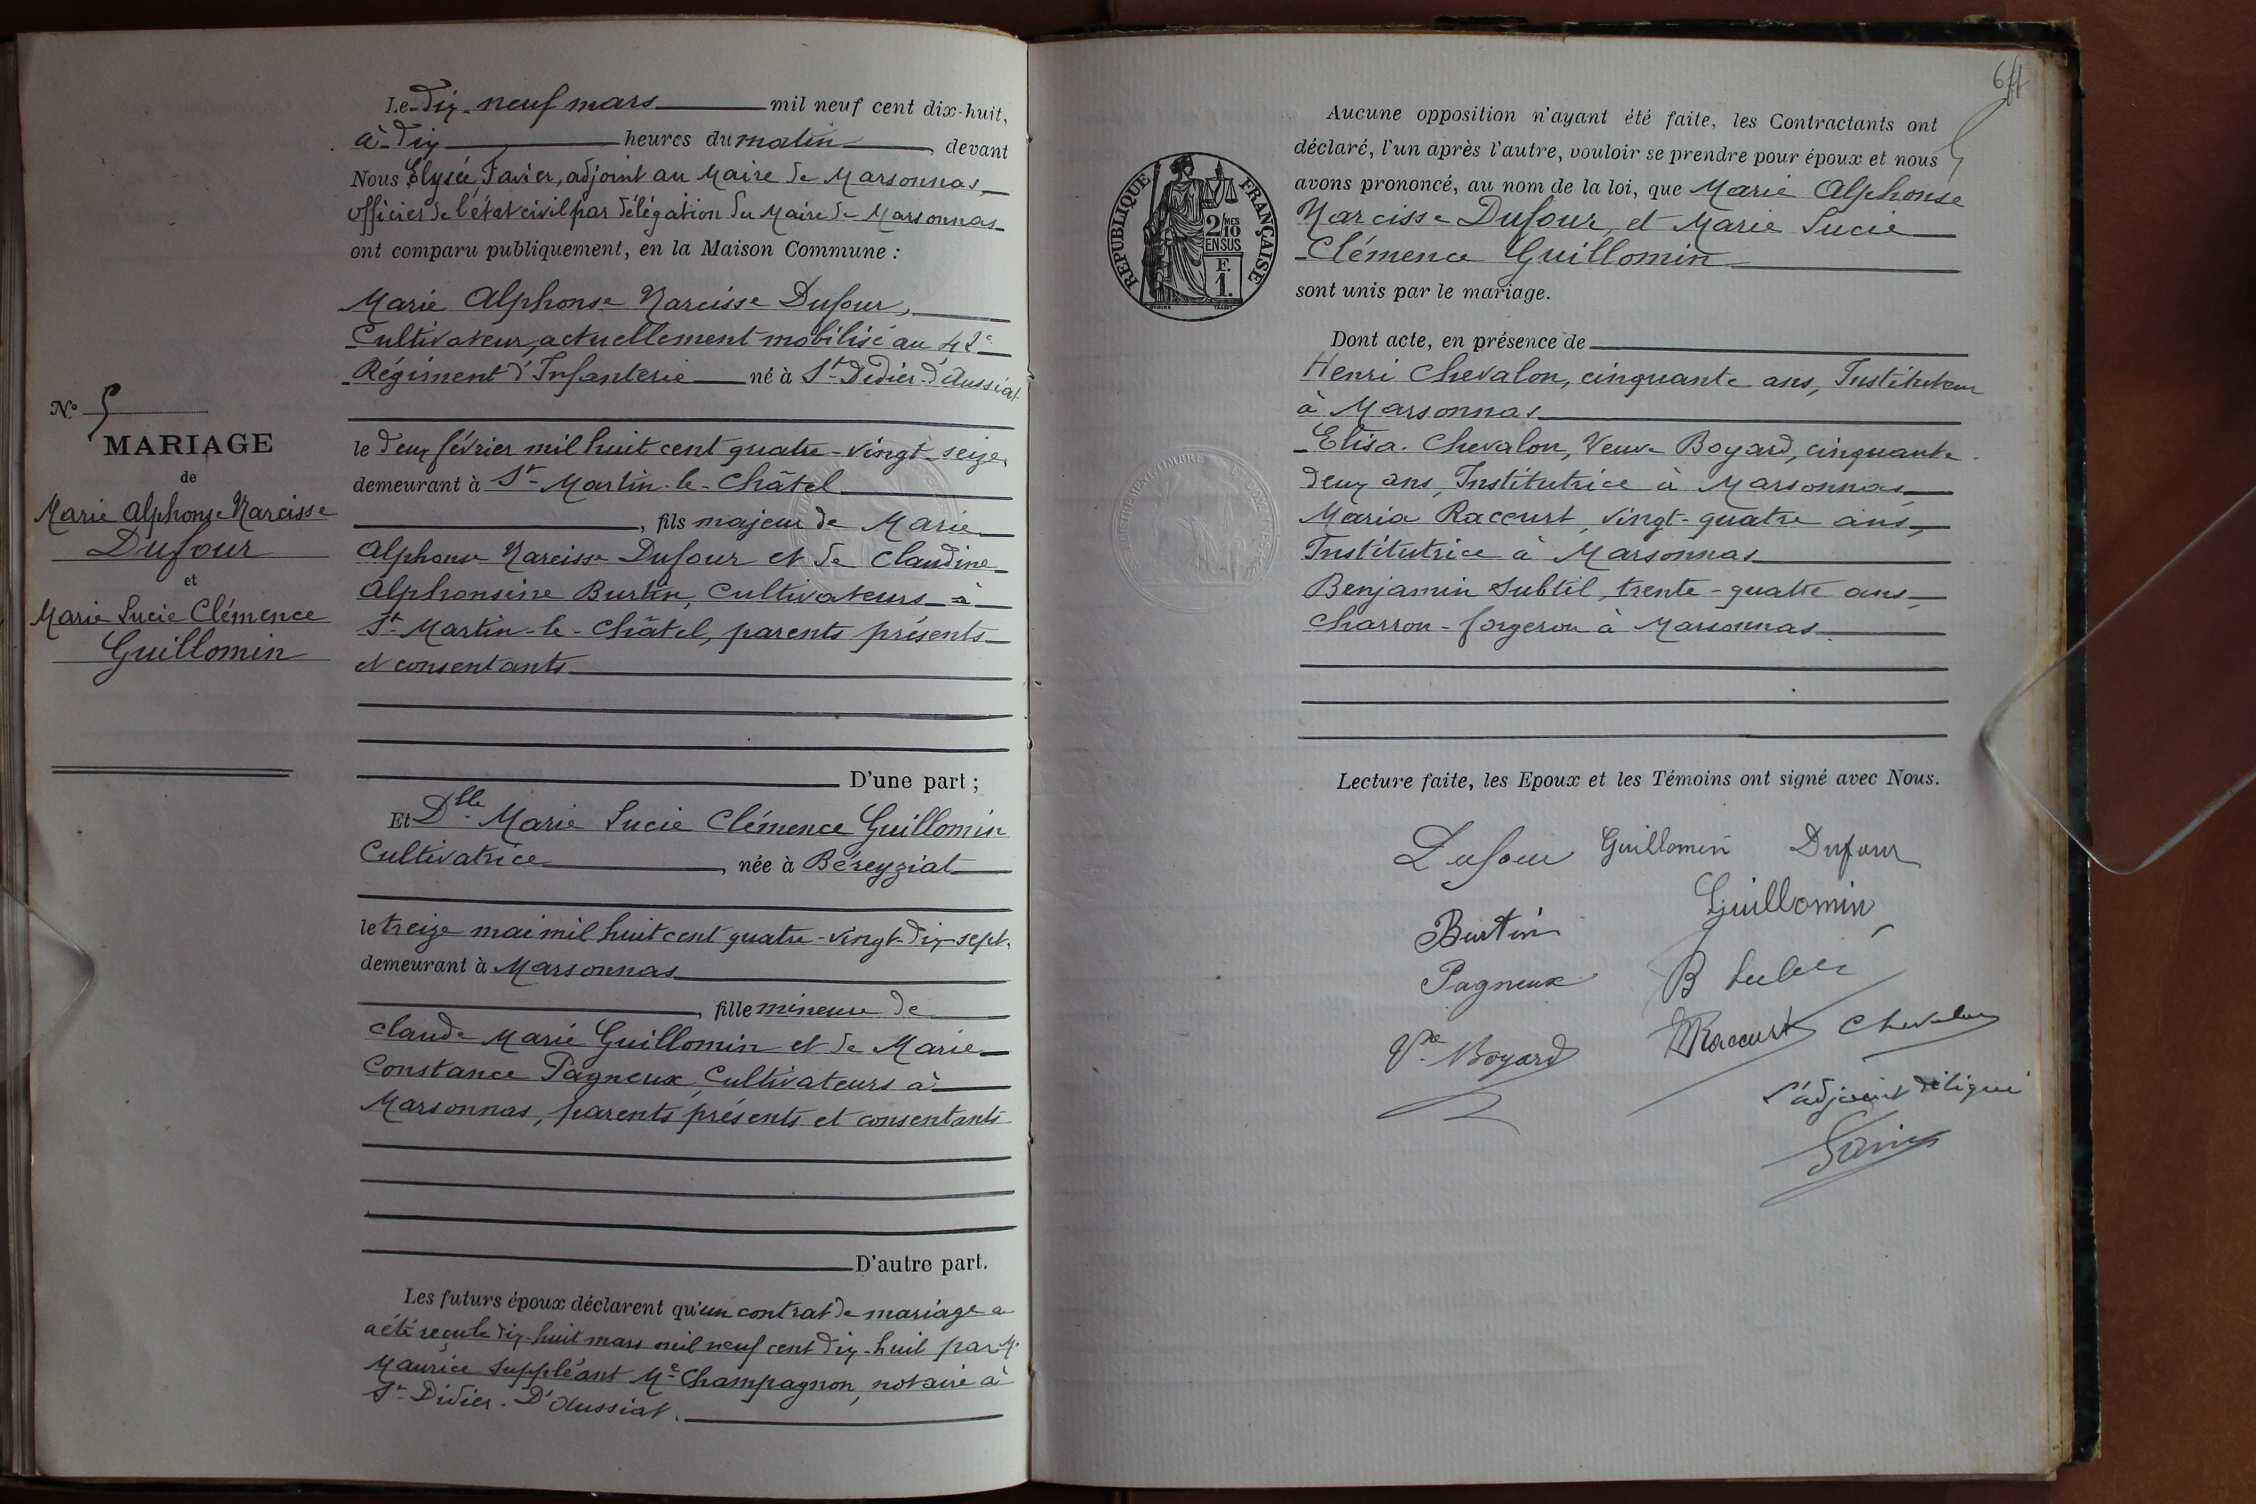 Le dix-neuf mars mil neuf cent dix-huit,
à dix heures du matin, devant
Nous Elysée Favier, adjoint au Maire de Marsonnas,
officier de l'état civil par délégation du Maire de Marsonnas
ont comparu publiquement, en la Maison Commune :
Marie Alphonse Narcisse Dufour,
Cultivateur, actuellement mobilisé au 42e
Régiment d'Infanterie né à St-Didier-d'Aussiat
le deux février mil huit cent quatre-vingt-seize,
demeurant à St-Martin-le-Châtel
, fils majeur de Marie
Alphonse Narcisse Dufour et de Claudine
Alphonsine Burtin, Cultivateurs à
St Martin-le-Châtel, parents présents
et consentants
D'une part ;
Et Dlle Marie Lucie Clémence Guillomin
Cultivatrice, née à Béreyziat
le treize mai mil huit cent quatre-vingt-dix-sept,
demeurant à Marsonnas
, fille mineure de
Claude Marie Guillomin et de Marie
Constance Pagneux, Cultivateurs à
Marsonnas, parents présents et consentants
D'autre part.
Les futurs époux déclarent qu'un contrat de mariage a
a été reçu le dix-huit mars mil neuf cent dix-huit par M.
Maurice suppléant Me Champagnon, notaire à
St-Didier-D'Aussiat.
No 5
MARIAGE
de
Marie Alphonse Narcisse
Dufour
et
Marie Lucie Clémence
Guillomin
64
Aucune opposition n'ayant été faite, les Contractants ont
déclaré, l'un après l'autre, vouloir se prendre pour époux et nous
avons prononcé, au nom de la loi, que Marie Alphonse
Narcisse Dufour, et Marie Lucie
Clémence Guillomin
sont unis par le mariage.
RÉPUBLIQUE FRANÇAISE
2/10 MES
EN SUS
F.
1.
Dont acte, en présence de
Henri Chevalon, cinquante ans, Instituteur
à Marsonnas
Elisa Chevalon, Veuve Boyard, cinquante-
deux ans, Institutrice à Marsonnas
Maria Raccurt, vingt-quatre ans,
Institutrice à Marsonnas
Benjamin Subtil, trente-quatre ans,
Charron-forgeron à Marsonnas
Lecture faite, les Epoux et les Témoins ont signé avec Nous.
Dufour Guillomin Dufour
Guillomin
Burtin
Pagneux B Subtil
Vve Boyard MRaccurt Chevalon
L'adjoint délégué
Favier